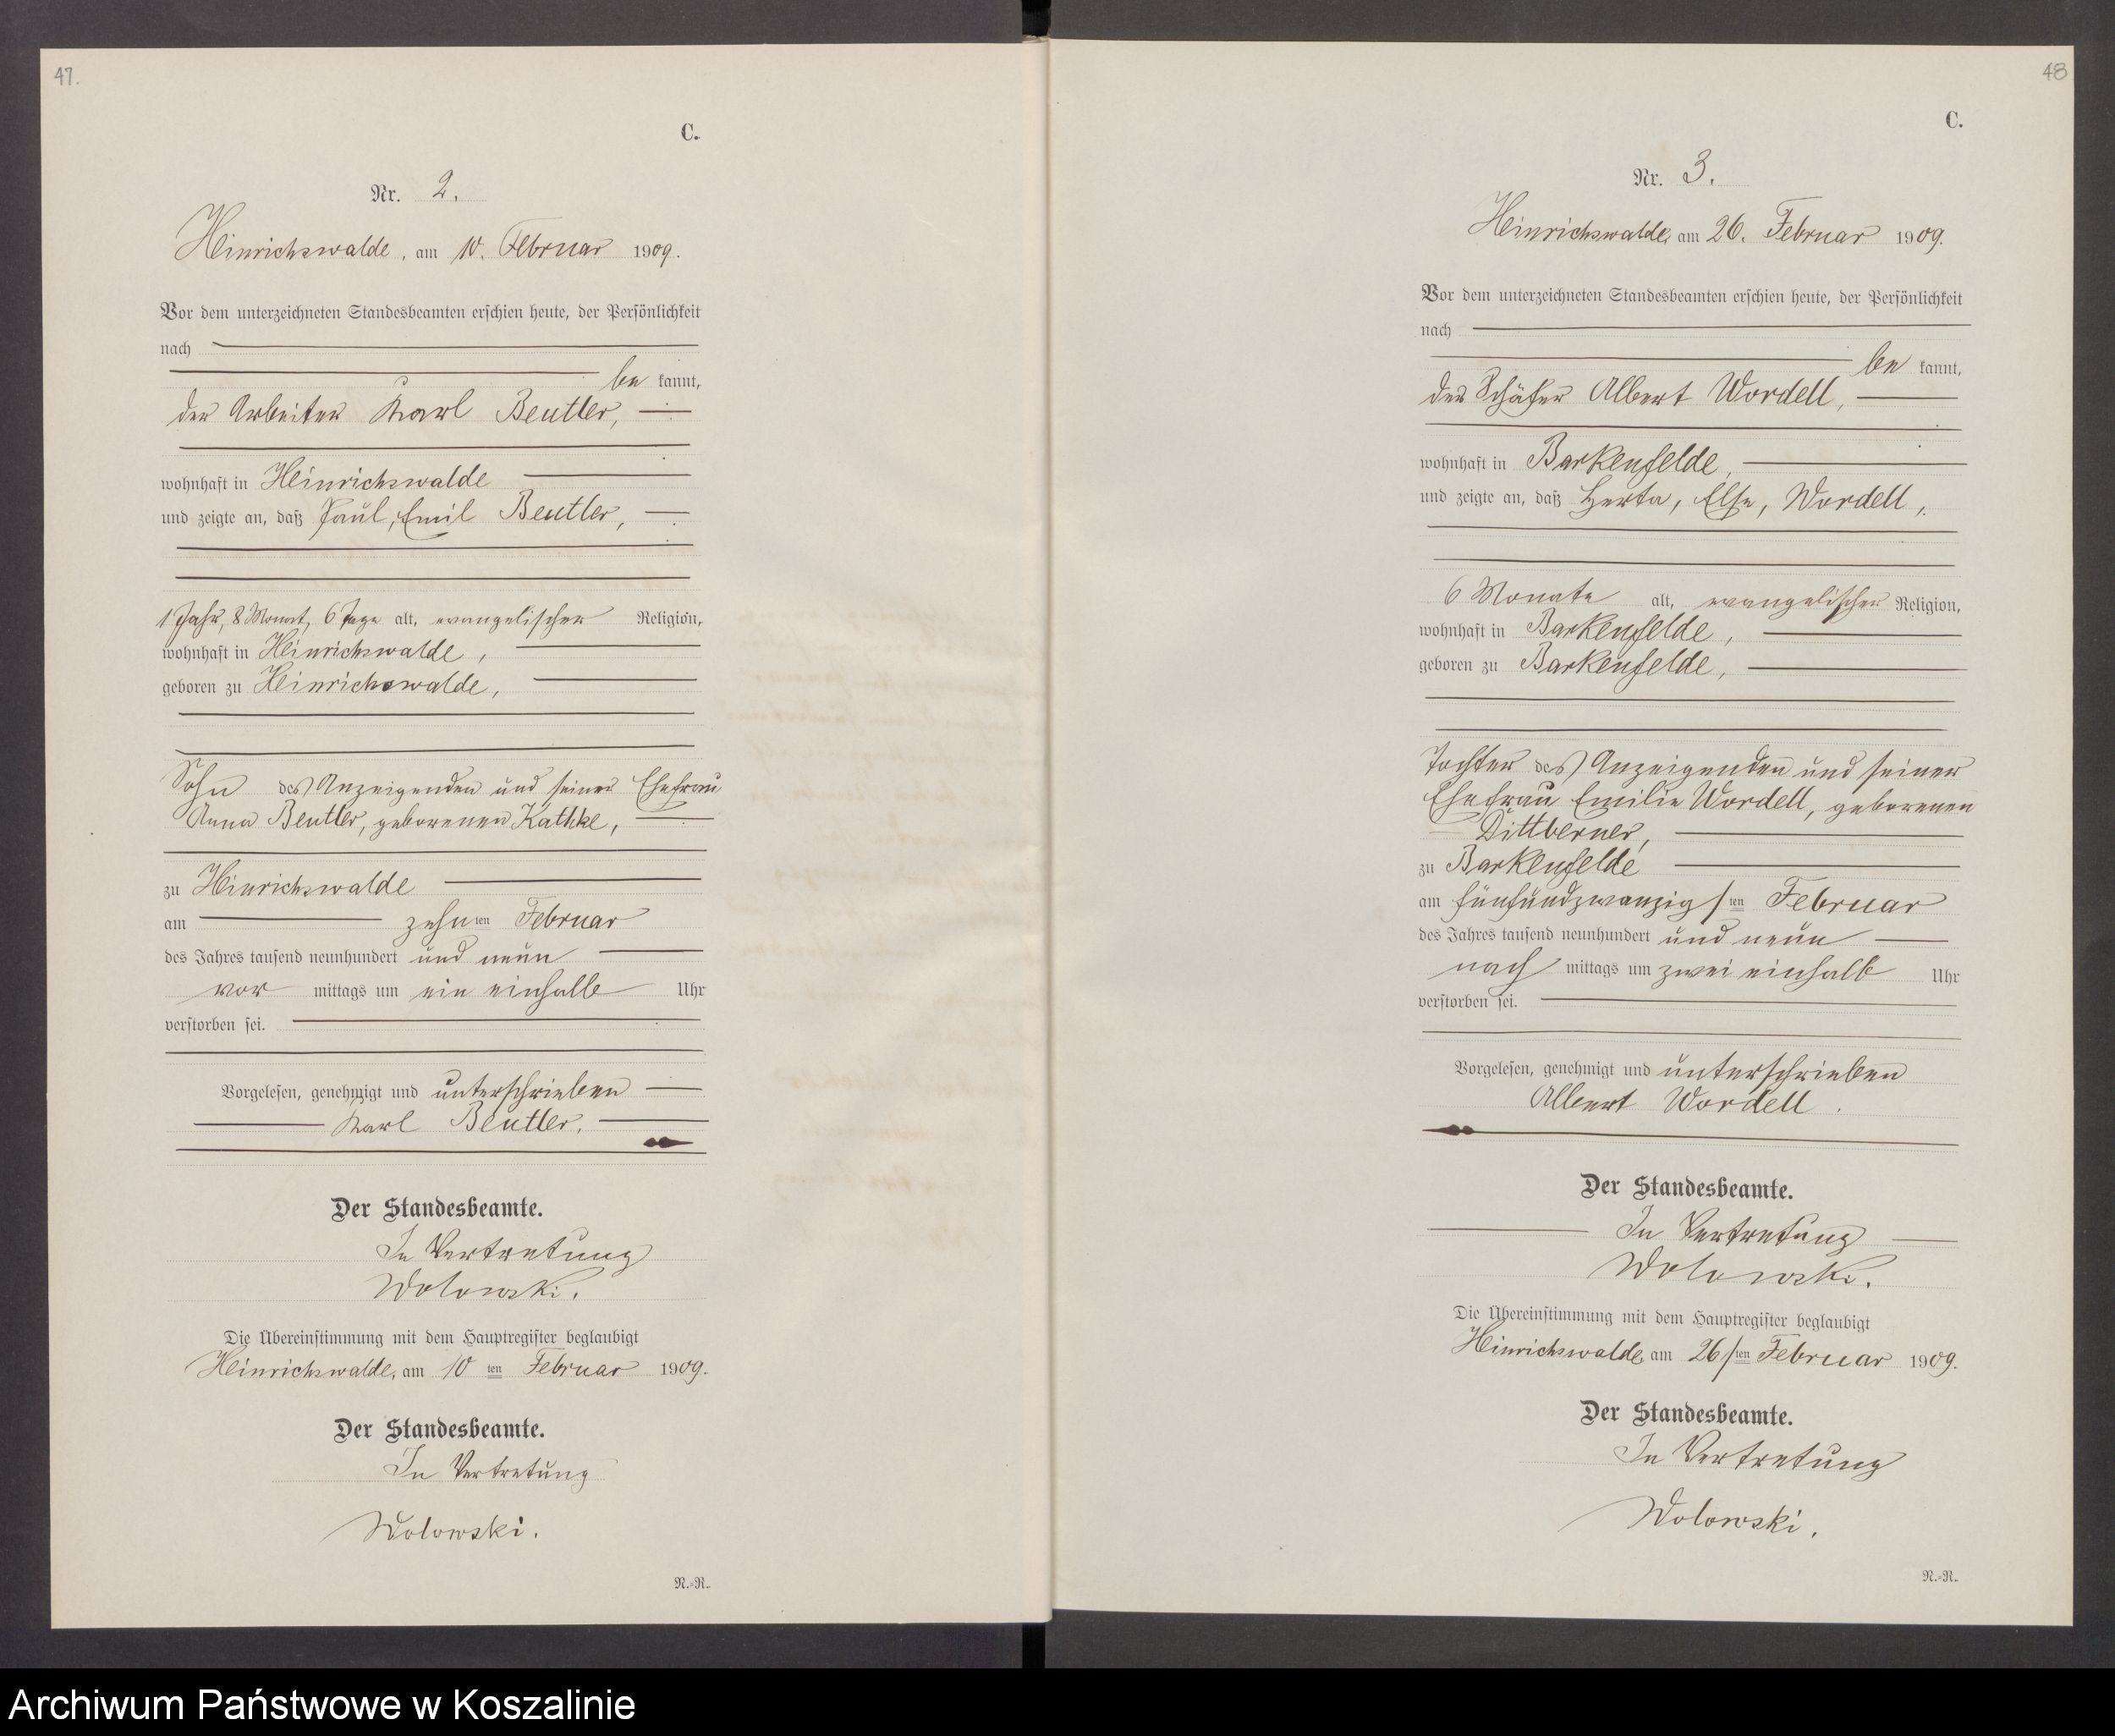 47.
C.
Nr. 2.
Heinrichswalde, am 10. Februar 1909.
Vor dem unterzeichneten Standesbeamten erschien heute, der Persönlichkeit
nach
be kannt,
der Arbeiter Karl Beutler,
wohnhaft in Heinrichswalde
und zeigte an, daß Paul, Emil Beutler,
1 Jahr, 8 Monat, 6 Tage alt, evangelischer Religion,
wohnhaft in Heinrichswalde,
geboren zu Heinrichswalde,
Sohn des Anzeigenden und seiner Ehefrau
Anna Beutler, geborenen Kathke,
zu Heinrichswalde
am zehnten Februar
des Jahres tausend neunhundert und neun
vor mittags um ein einhalb Uhr
verstorben sei.
Vorgelesen, genehmigt und unterschrieben
Karl Beutler.
Der Standesbeamte.
In Vertretung
Wolowski.
Die Übereinstimmung mit dem Hauptregister beglaubigt
Heinrichswalde, am 10 ten Februar 1909.
Der Standesbeamte.
In Vertretung
Wolowski.
N.=R.
48
C.
Nr. 3.
Heinrichswalde, am 26. Februar 1909.
Vor dem unterzeichneten Standesbeamten erschien heute, der Persönlichkeit
nach
be kannt,
der Schäfer Albert Wordell,
wohnhaft in Barkenfelde,
und zeigte an, daß Herta, Else, Wordell,
6 Monate alt, evangelischer Religion,
wohnhaft in Barkenfelde,
geboren zu Barkenfelde,
Tochter des Anzeigenden und seiner
Ehefrau Emilie Wordell, geborenen
Dittberner,
zu Barkenfelde
am fünfundzwanzigsten Februar
des Jahres tausend neunhundert und neun
nach mittags um zwei einhalb Uhr
verstorben sei.
Vorgelesen, genehmigt und unterschrieben
Albert Wordell.
Der Standesbeamte.
In Vertretung
Wolowski.
Die Übereinstimmung mit dem Hauptregister beglaubigt
Heinrichswalde, am 26sten Februar 1909.
Der Standesbeamte.
In Vertretung
Wolowski.
N.=R.
Archiwum Państwowe w Koszalinie